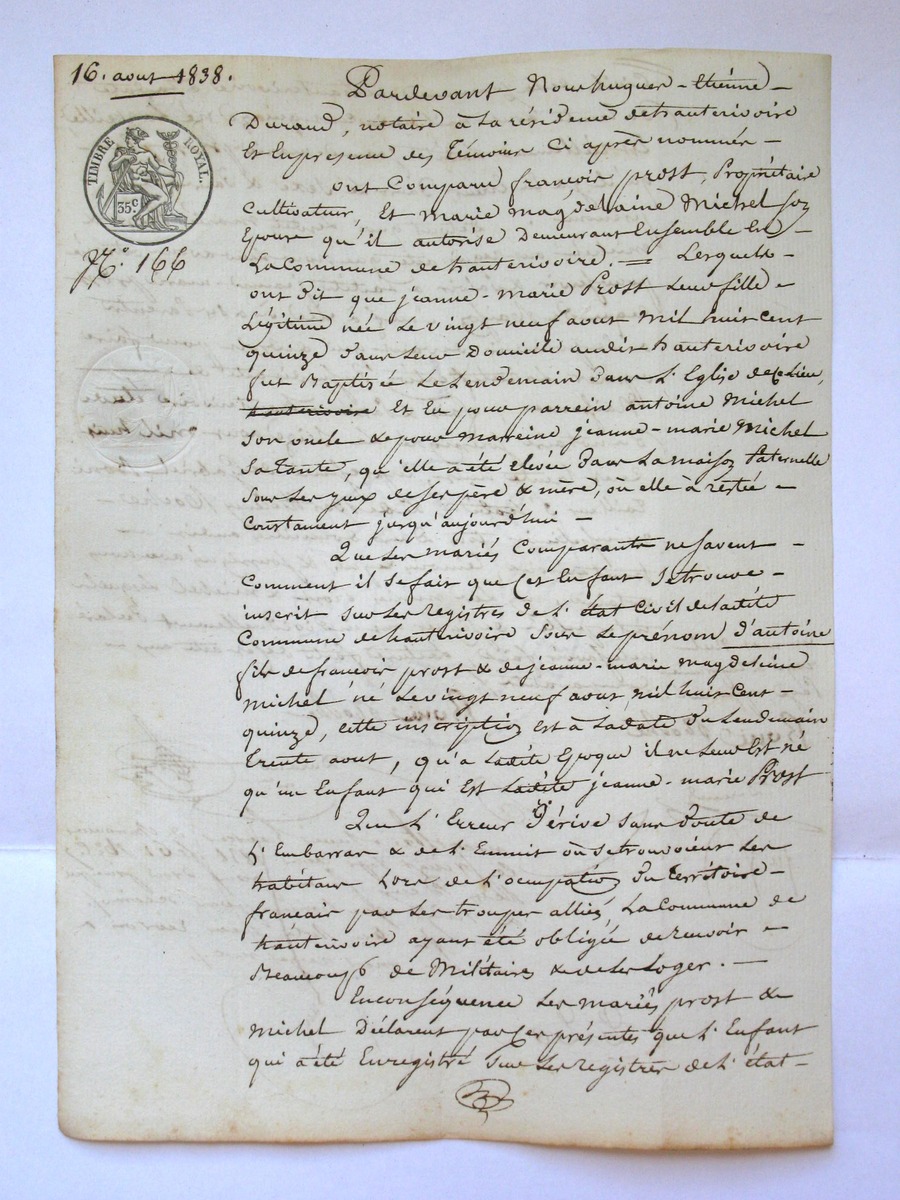 16. aout 1838.
TIMBRE ROYAL.
35 c
N.° 166
Pardevant Nous hugues-étienne
Durand, notaire à La résidence de hauterivoire
Et En présence des Témoins Ci après nommés
ont Comparu françois prost, Propriétaire
Cultivateur, Et marie magdelaine Michel son
Epouse qu'il autorise Demeurant Ensemble En
La Commune de hauterivoire. = Lesquels
ont Dit que jeanne-marie Prost Leur fille
Légitime née Le vingt neuf aout Mil huit Cent
quinze Dans Leur Domicile audit hauterivoire
fut Baptisée Le Lendemain Dans L'Eglise de Ce Lieu,
hauterivoire Et Eu pour parrein antoine Michel
son oncle & pour Marreine jeanne-marie Michel
sa Tante, qu'elle a été Elevée Dans La maison Paternelle
sous Les yeux de ses père & mère, où elle à restée
Constament jusqu'aujourd'hui
Que Les mariés Comparants ne savent
Comment il se fait que Cet Enfant se trouve
inscrit sur Les registres de L'état Civil de Ladite
Commune de hauterivoire sous Le prénom d'antoine
fils de francois prost & de jeanne-marie magdeleine
Michel né Le vingt neuf aout mil huit Cent
quinze, cette inscription Est à La date Du Lendemain
Trente aout, qu'a Ladite Epoque il ne Leur Est né
qu'un Enfant qui Est Ladite jeanne-marie Prost
Que L'Erreur Dérive sans Doute de
L'Embarras & de L'Ennuit où se trouvoient Les
habitans Lors de L'occupation Du Territoire
francais par Les troupes alliés, La Commune de
hauterivoire ayant été obligée de recevoir
Beaucoup de Militaires & de Les Loger.
En Conséquence Les mariés prost &
Michel Déclarent par Ces présentes que L'Enfant
qui a été Enregistré sur Les registres de L'état